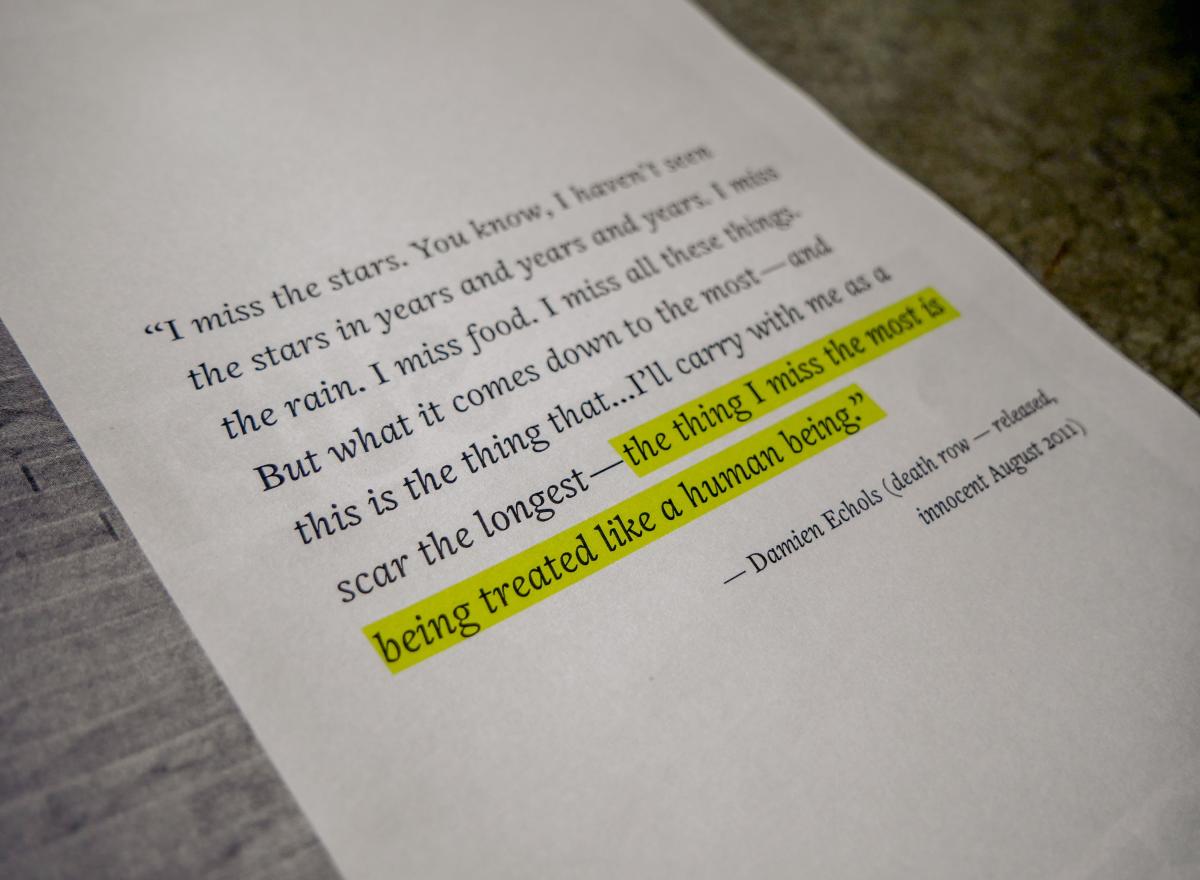 “I miss the stars. You know, I haven’t seen
the stars in years and years and years. I miss
the rain. I miss food. I miss all these things.
But what it comes down to the most—and
this is the thing that...I’ll carry with me as a
scar the longest—the thing I miss the most is
being treated like a human being.”
— Damien Echols (death row — released,
innocent August 2011)